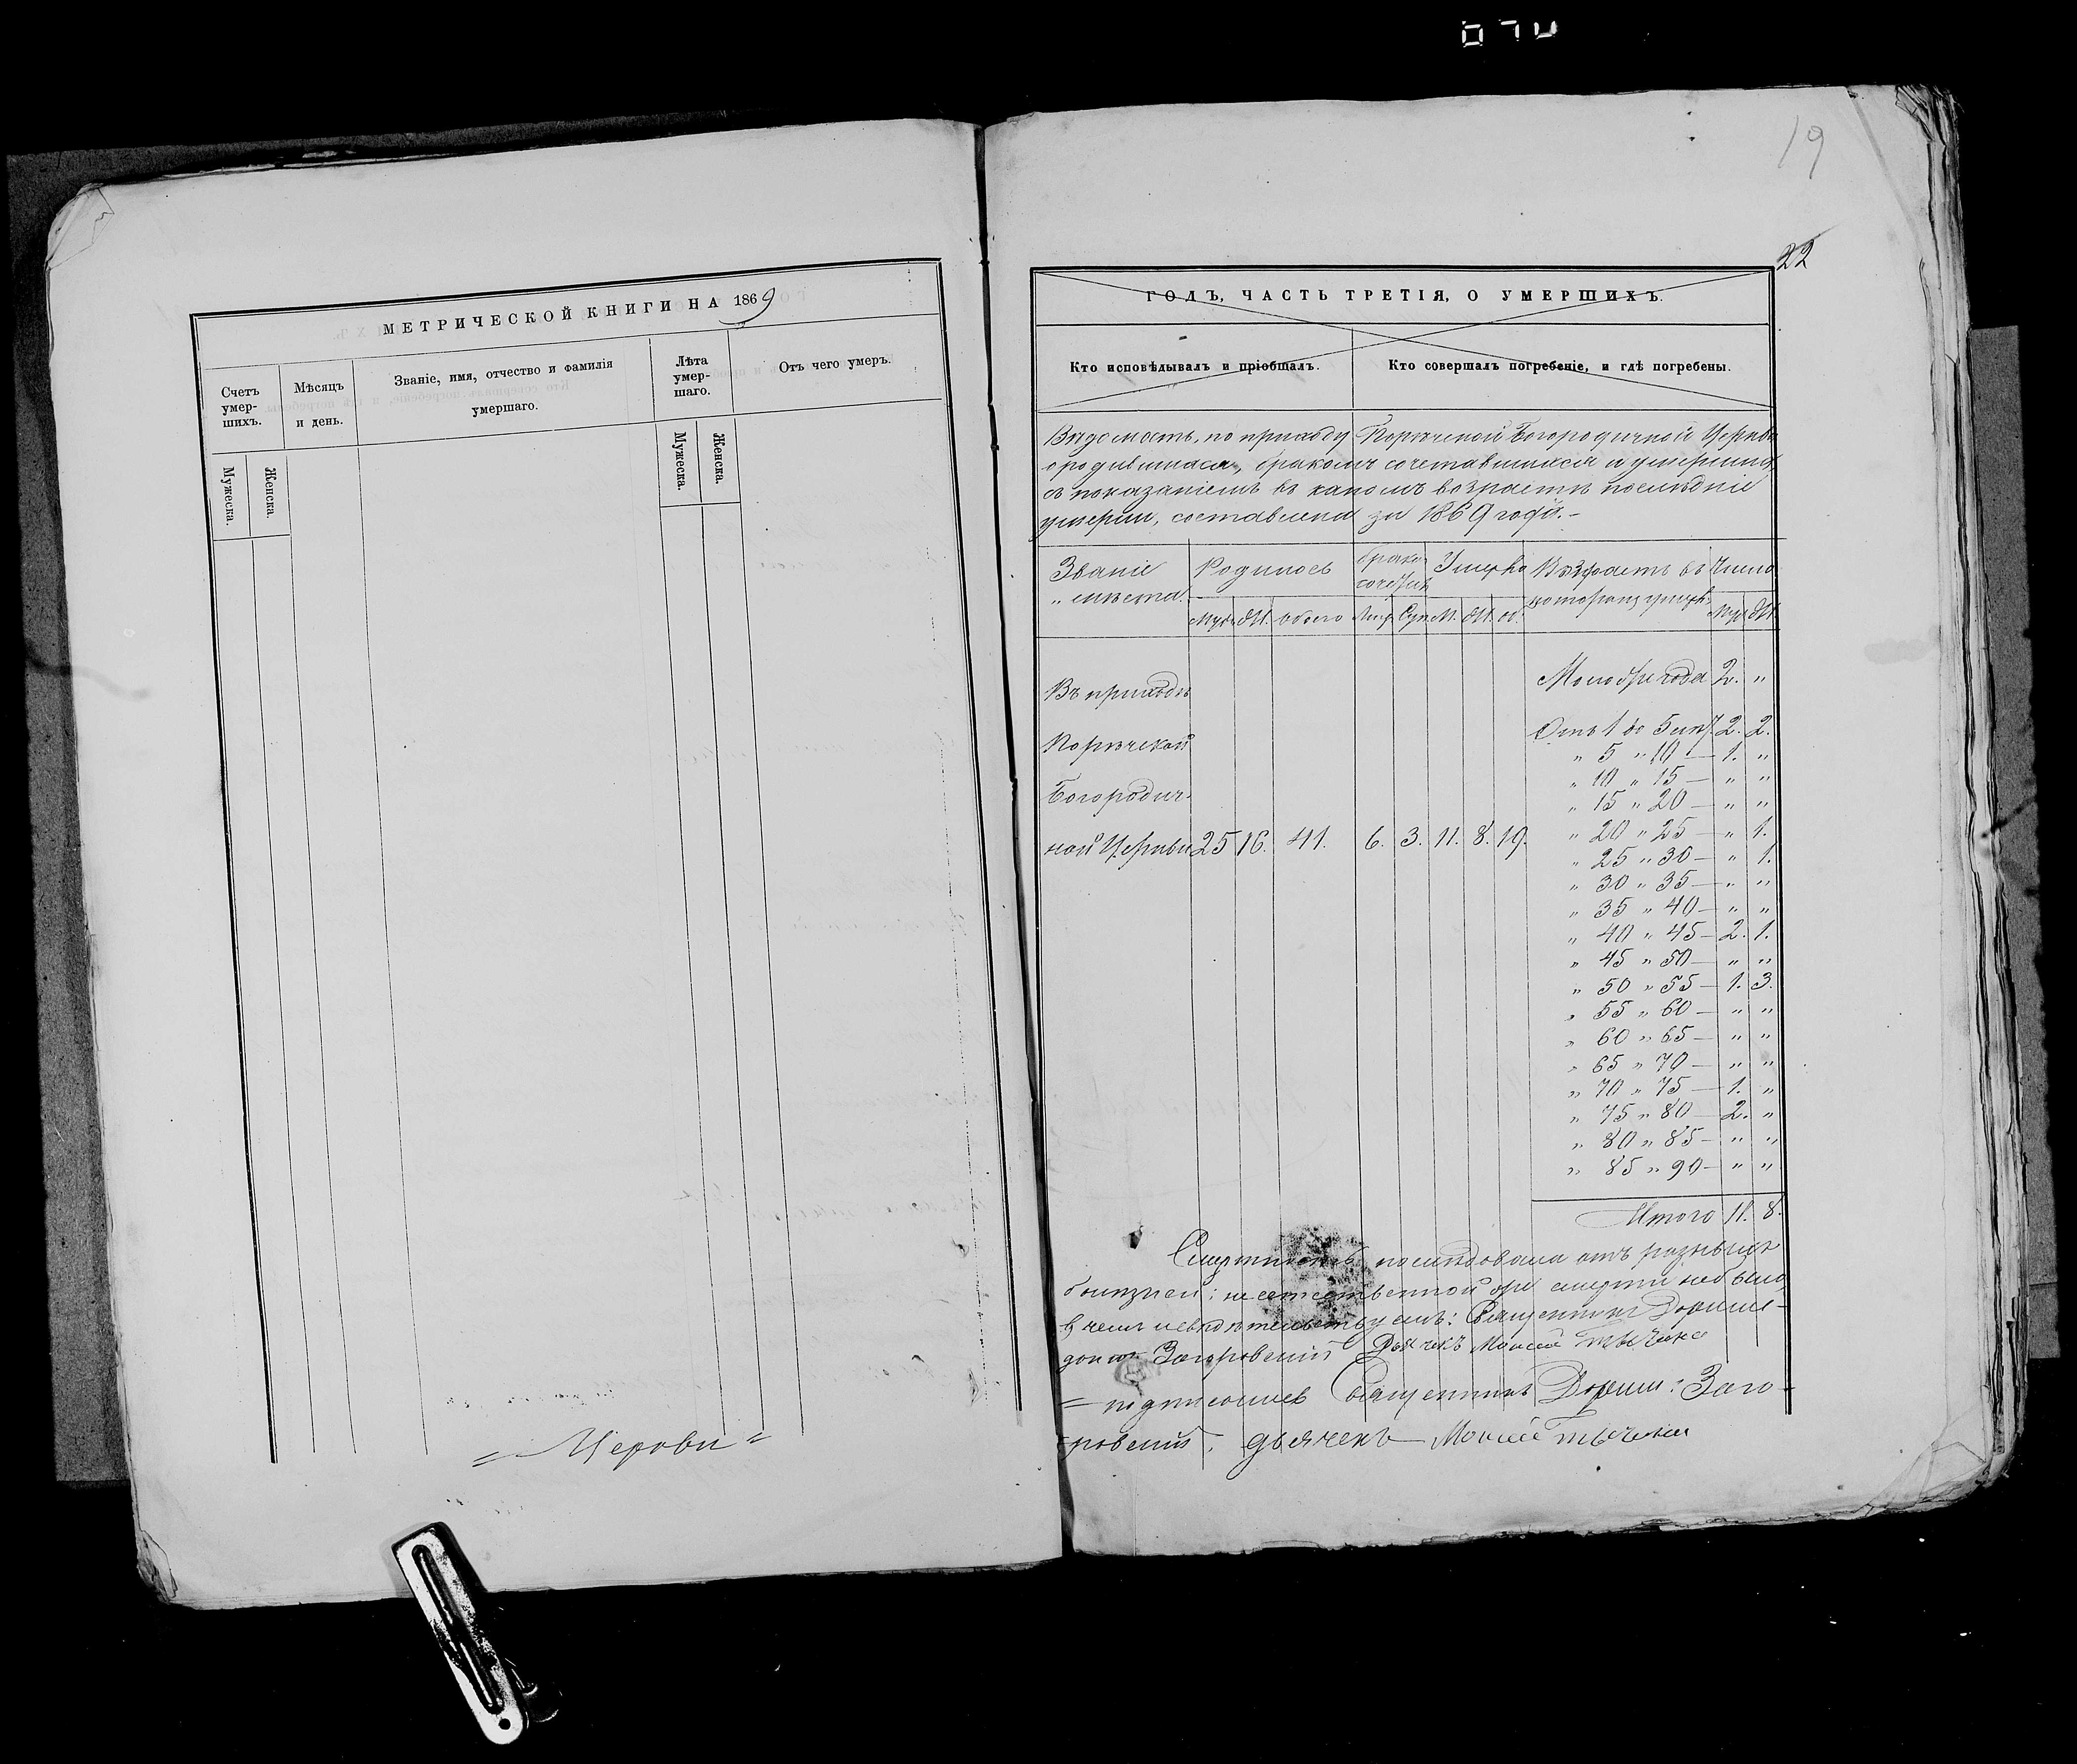 19
22
МЕТРИЧЕСКОЙ КНИГИ НА 1869
Счетъ умер-шихъ.
Мѣсяцъ и день.
Званіе, имя, отчество и фамилія умершаго.
Лѣта умер-шаго.
Отъ чего умеръ.
Мужеска.
Женска.
Мужеска.
Женска.
= Церкви =
ГОДЪ, ЧАСТЬ ТРЕТІЯ, О УМЕРШИХЪ.
Кто исповѣдывалъ и пріобщалъ.
Кто совершалъ погребеніе, и гдѣ погребены.
Вѣдомость, по приходу Порѣчской Богородичной Церкви
о родившихся, бракомъ сочетавшихся и умершихъ
съ показаніемъ въ какомъ возрастѣ послѣдніе
умерли, составлена за 1869 годъ.-
Званіе
" мѣста.
Родилось
Умерло
Возрастъ въ
Число
Обоего
М.
об.
Въ приходѣ
Порѣчской
Богородич-
ной Церкви 25 16. 41. 6. 3. 11. 8. 19.
Моложе года 2. "
Отъ 1 до 5 лѣт. 2. 2.
" 5 " 10 — 1. "
" 10 " 15 — " "
" 15 " 20 — " "
" 20 " 25 — " 1.
" 25 " 30 — " 1.
" 30 " 35 — " "
" 35 " 40 — " "
" 40 " 45 — 2. 1.
" 45 " 50 — " "
" 50 " 55 — 1. 3.
" 55 " 60 — " "
" 60 " 65 — " "
" 65 " 70 — " "
" 70 " 75 — 1. "
" 75 " 80 — 2. "
" 80 " 85 — " "
" 85 " 90 — " "
Итого 11. 8.
Смертность послѣдовала отъ разныхъ
болѣзней; неестественной же смерти небыло,
в чемъ свидѣтельствуемъ: Священникъ
Загоровскій Дьячекъ Моисей
= подписались Священникъ Заго-
ровскій, дьячекъ Моисей